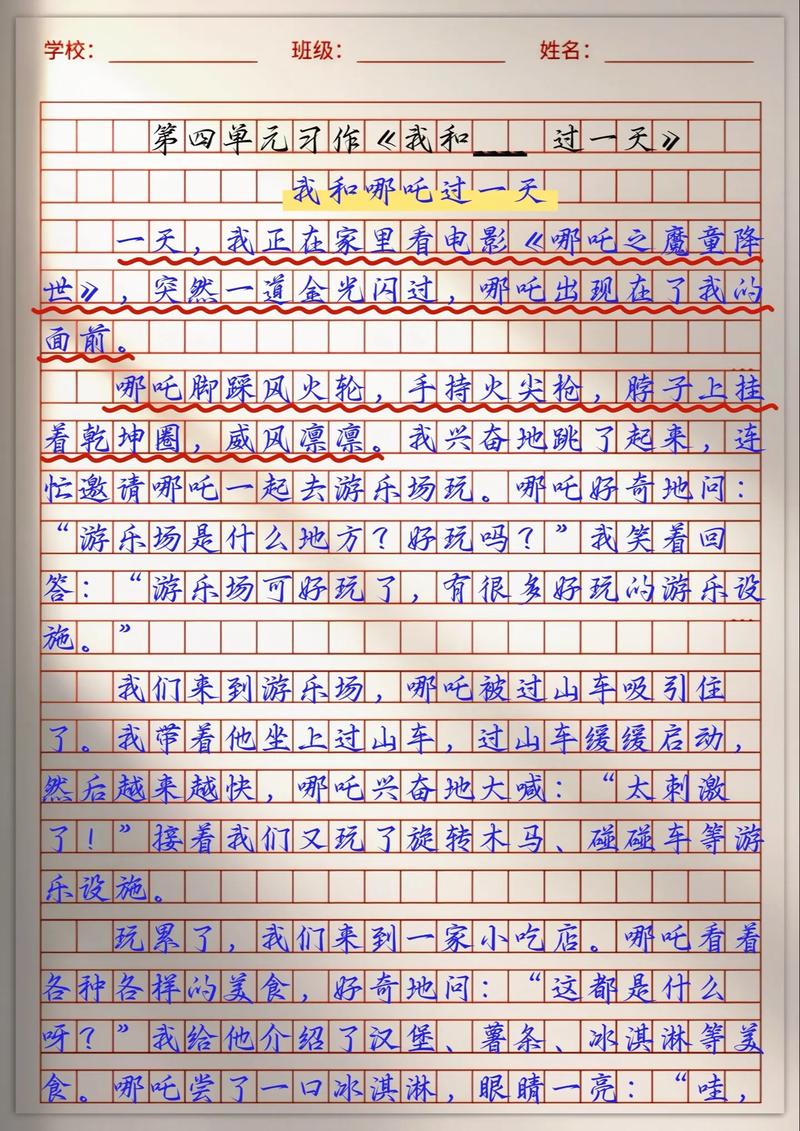 学校： 班级： 姓名：
第四单元习作《我和____ 过一天》
我和哪吒过一天
一天，我正在家里看电影《哪吒之魔童降
世》，突然一道金光闪过，哪吒出现在了我的
面前。
哪吒脚踩风火轮，手持火尖枪，脖子上挂
着乾坤圈，威风凛凛。我兴奋地跳了起来，连
忙邀请哪吒一起去游乐场玩。哪吒好奇地问：
“游乐场是什么地方？好玩吗？”我笑着回
答：“游乐场可好玩了，有很多好玩的游乐设
施。”
我们来到游乐场，哪吒被过山车吸引住
了。我带着他坐上过山车，过山车缓缓启动，
然后越来越快，哪吒兴奋地大喊：“太刺激
了！”接着我们又玩了旋转木马、碰碰车等游
乐设施。
玩累了，我们来到一家小吃店。哪吒看着
各种各样的美食，好奇地问：“这都是什么
呀？”我给他介绍了汉堡、薯条、冰淇淋等美
食。哪吒尝了一口冰淇淋，眼睛一亮：“哇，